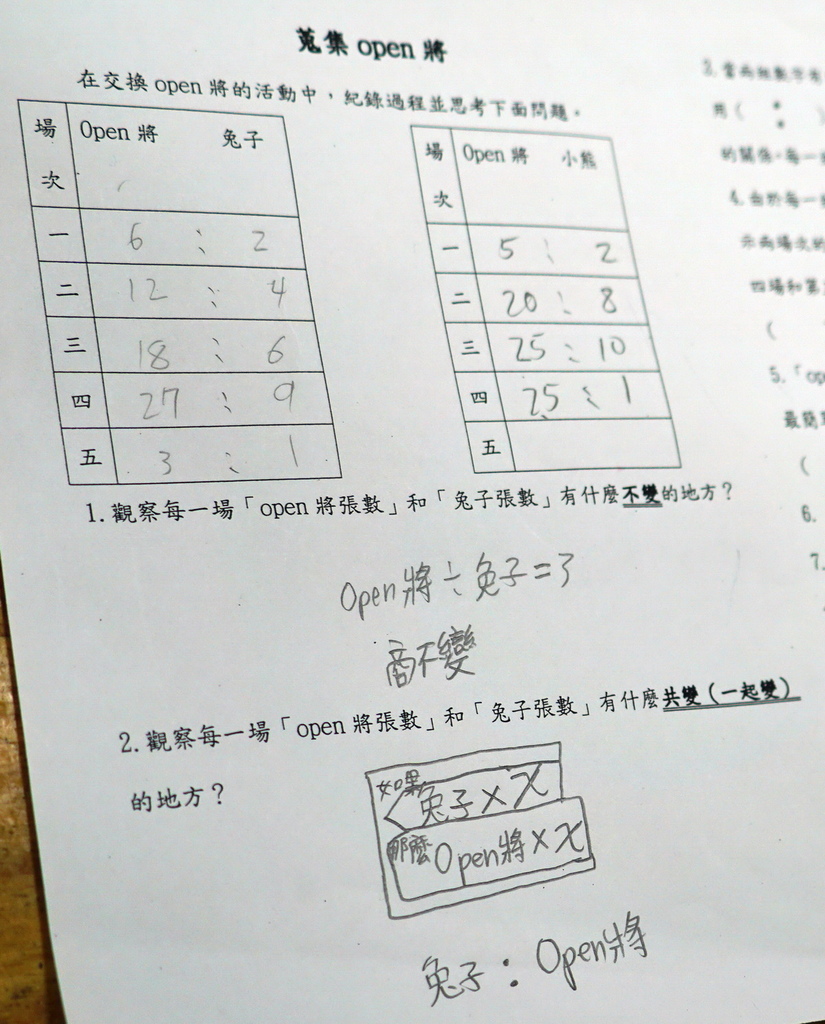 蒐集 open 將
在交換 open 將的活動中，紀錄過程並思考下面問題。
場次 Open 將 兔子
一 6 : 2
二 12 : 4
三 18 : 6
四 27 : 9
五 3 : 1
場次 Open 將 小熊
一 5 : 2
二 20 : 8
三 25 : 10
四 25 : 1
五
1. 觀察每一場「open 將張數」和「兔子張數」有什麼不變的地方？
Open將÷兔子=3
商不變
2. 觀察每一場「open 將張數」和「兔子張數」有什麼共變（一起變）
的地方？
如果 兔子×x
那麼 Open將×x
兔子：Open將
3. 當兩組數字有
用（ : ）
的關係，每一
4. 由於每一
示兩場次的
四場和第
(
5.「op
最簡
(
6.
7.